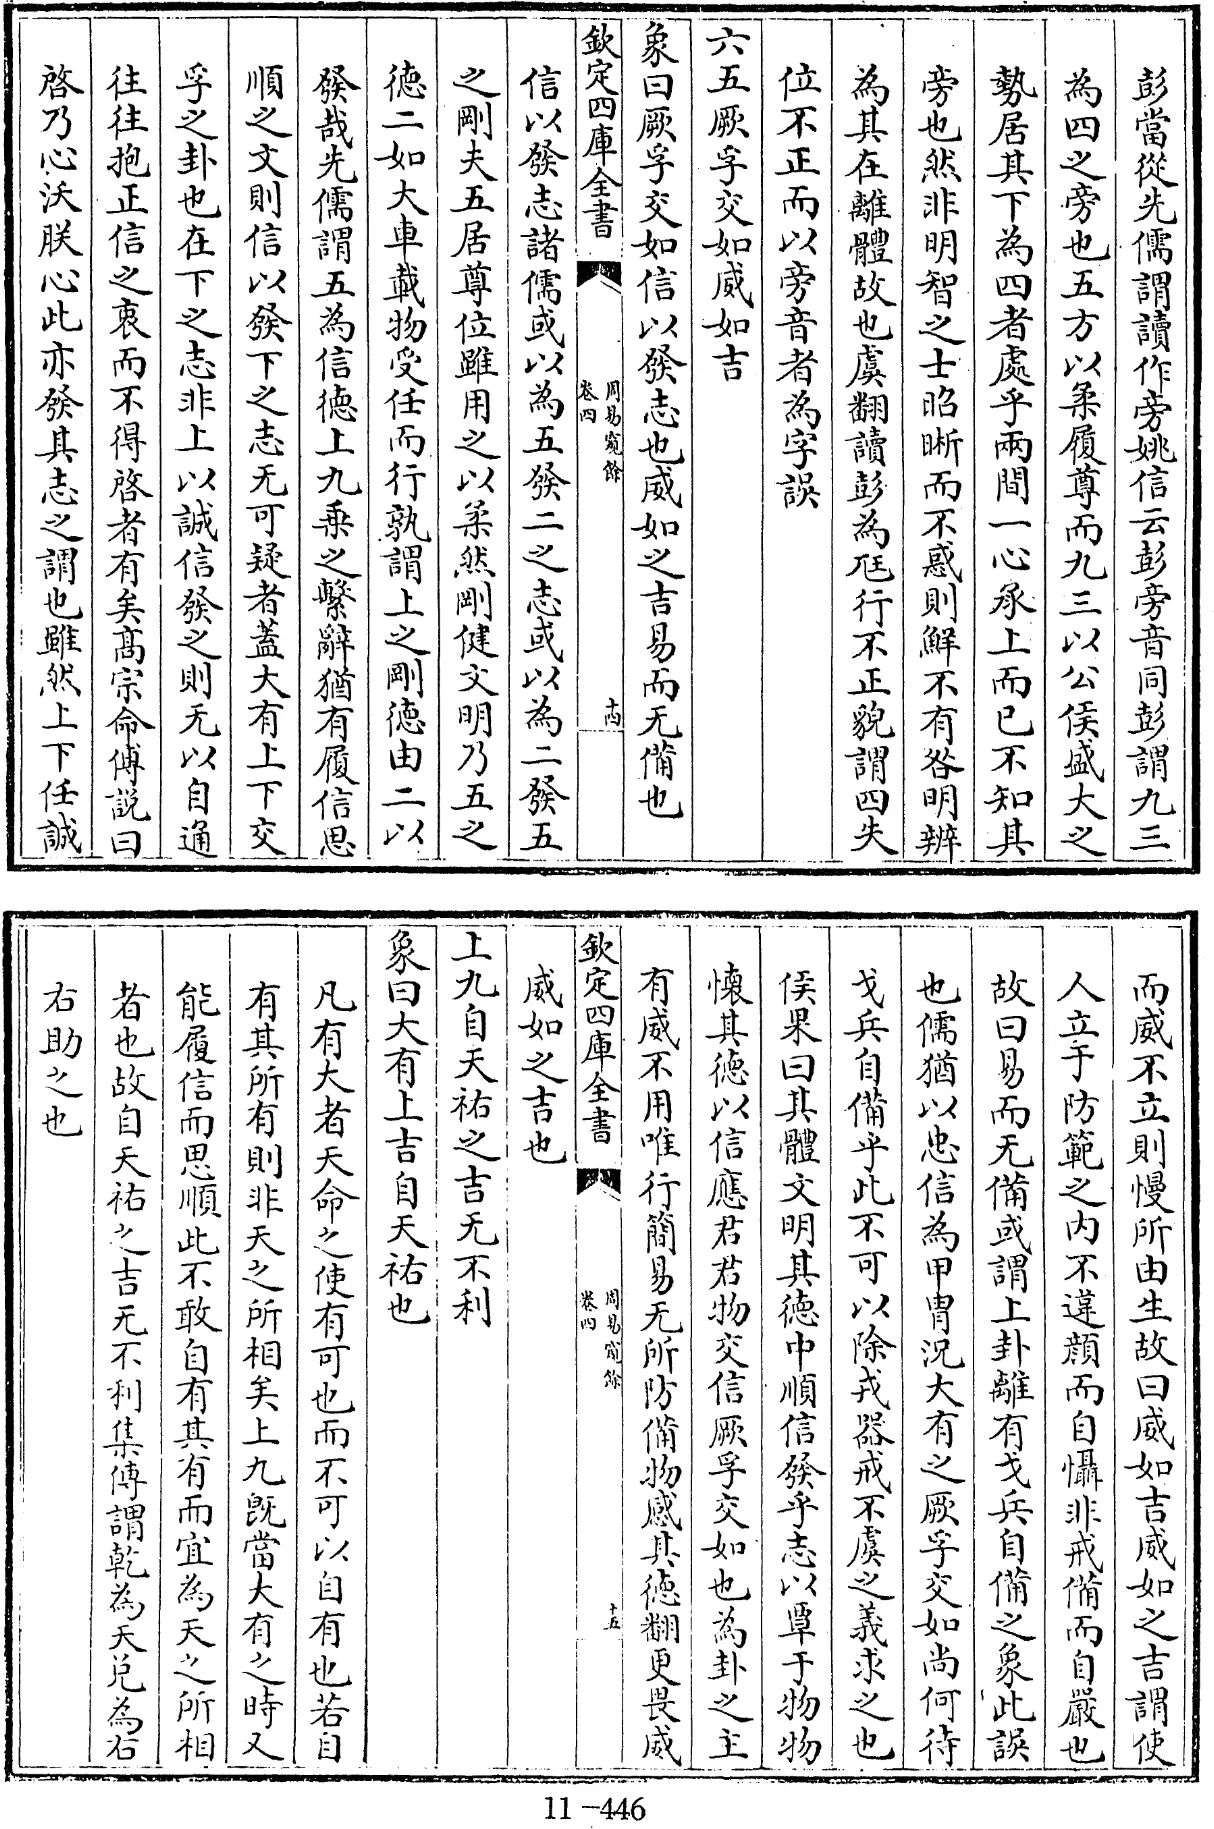 彭當從先儒謂讀作旁姚信云彭旁音同彭謂九三
為四之旁也五方以柔履尊而九三以公侯盛大之
勢居其下為四者處乎兩間一心承上而已不知其
旁也然非明智之士昭晰而不惑則鮮不有咎明辨
為其在離體故也虞翻讀彭為尪行不正貌謂四失
位不正而以旁音者為字誤
六五厥孚交如威如吉
象曰厥孚交如信以發志也威如之吉易而无備也
欽定四庫全書
周易窺餘
卷四
十四
信以發志諸儒或以為五發二之志或以為二發五
之剛夫五居尊位雖用之以柔然剛健文明乃五之
德二如大車載物受任而行孰謂上之剛德由二以
發哉先儒謂五為信德上九乗之繫辭猶有履信思
順之文則信以發下之志无可疑者蓋大有上下交
孚之卦也在下之志非上以誠信發之則无以自通
往往抱正信之衷而不得啓者有矣髙宗命傅説曰
啓乃心沃朕心此亦發其志之謂也雖然上下任誠
而威不立則慢所由生故曰威如吉威如之吉謂使
人立于防範之内不違顔而自懾非戒備而自嚴也
故曰易而无備或謂上卦離有戈兵自備之象此誤
也儒猶以忠信為甲胄況大有之厥孚交如尚何待
戈兵自備乎此不可以除戎器戒不虞之義求之也
侯果曰其體文明其德中順信發乎志以覃于物物
懷其德以信應君君物交信厥孚交如也為卦之主
有威不用唯行簡易无所防備物感其德翻更畏威
欽定四庫全書
周易窺餘
卷四
十五
威如之吉也
上九自天祐之吉无不利
象曰大有上吉自天祐也
凡有大者天命之使有可也而不可以自有也若自
有其所有則非天之所相矣上九既當大有之時又
能履信而思順此不敢自有其有而宜為天之所相
者也故自天祐之吉无不利集傳謂乾為天兑為右
右助之也
11-446